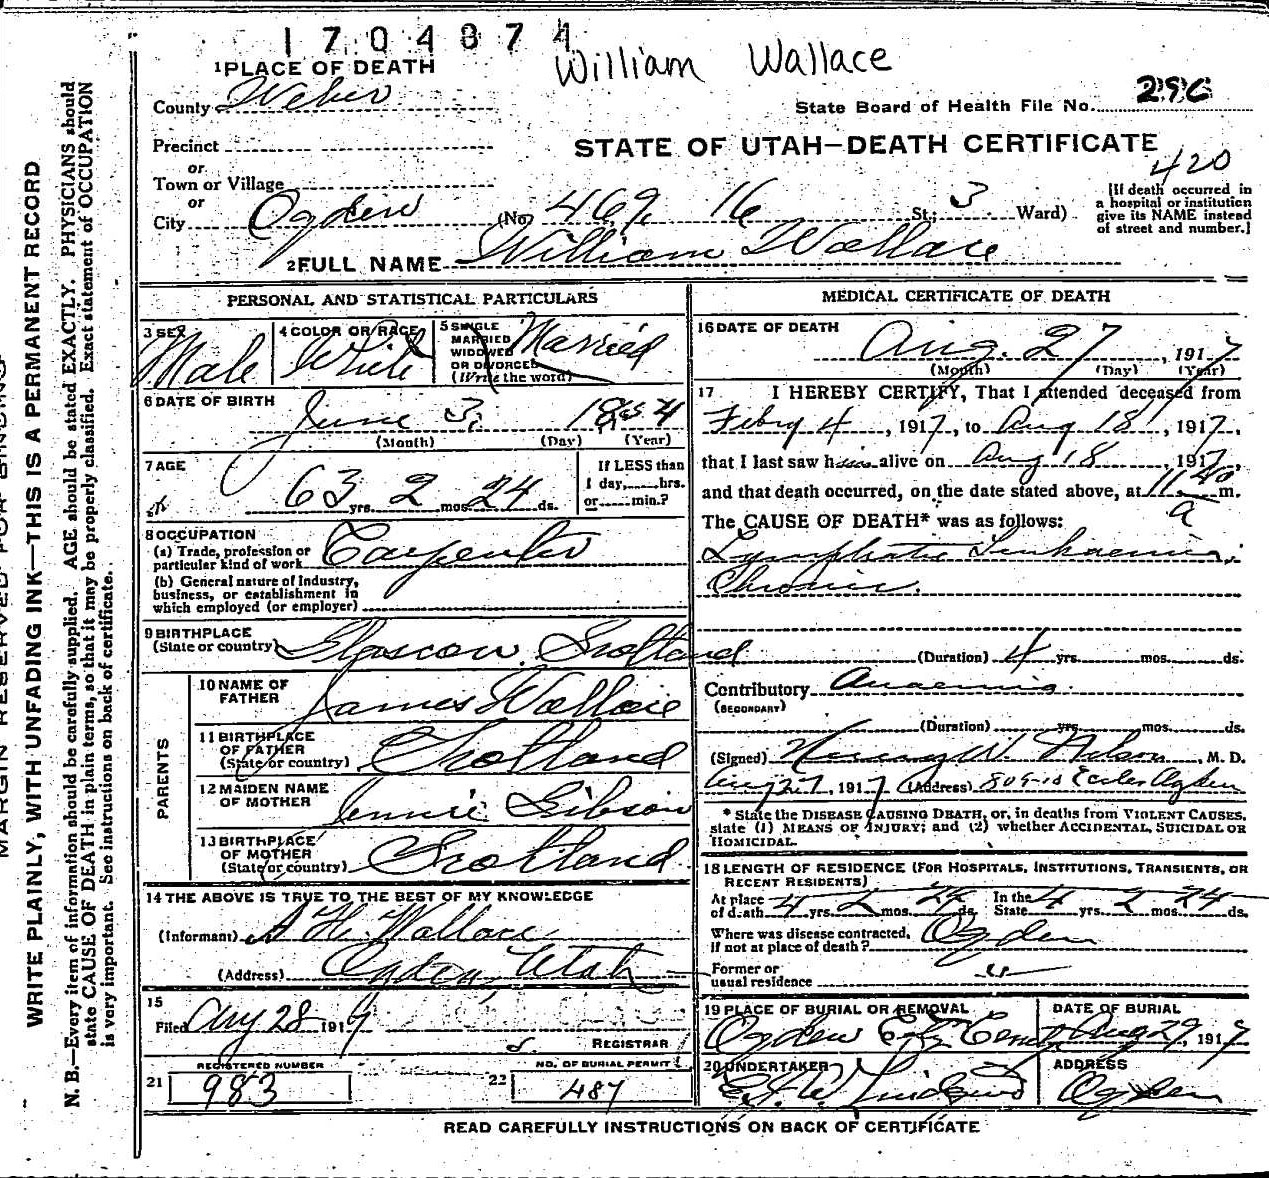 1704874
William Wallace
1 PLACE OF DEATH
County Weber
State Board of Health File No. 296
Precinct
STATE OF UTAH—DEATH CERTIFICATE
or
Town or Village
420
or
City Ogden (No. 469 16 St.; 3 Ward)
[If death occurred in
a hospital or institution
give its NAME instead
of street and number.]
2 FULL NAME William Wallace
PERSONAL AND STATISTICAL PARTICULARS
3 SEX Male
4 COLOR OR RACE White
5 SINGLE
MARRIED
WIDOWED
OR DIVORCED
(Write the word)
Married
6 DATE OF BIRTH
June 3, 1854
(Month) (Day) (Year)
7 AGE
63 yrs. 2 mos. 24 ds.
If LESS than
1 day, hrs.
or min.?
8 OCCUPATION
(a) Trade, profession or
particular kind of work Carpenter
(b) General nature of Industry,
business, or establishment in
which employed (or employer)
9 BIRTHPLACE
(State or country) Glascow Scotland
PARENTS
10 NAME OF
FATHER James Wallace
11 BIRTHPLACE
OF FATHER
(State or country) Scotland
12 MAIDEN NAME
OF MOTHER Jennie Gibson
13 BIRTHPLACE
OF MOTHER
(State or country) Scotland
14 THE ABOVE IS TRUE TO THE BEST OF MY KNOWLEDGE
(Informant) A H Wallace
(Address) Ogden, Utah
15
Filed Aug 28 1917
REGISTRAR
REGISTERED NUMBER
21 983
NO. OF BURIAL PERMIT
22 487
MEDICAL CERTIFICATE OF DEATH
16 DATE OF DEATH
Aug. 27, 1917
(Month) (Day) (Year)
17 I HEREBY CERTIFY, That I attended deceased from
Febry 4, 1917, to Aug 18, 1917,
that I last saw him alive on Aug 18, 1917,
and that death occurred, on the date stated above, at 11:40 a m.
The CAUSE OF DEATH* was as follows:
Lymphatic Leukaemia,
Chronic.
(Duration) 4 yrs. mos. ds.
Contributory Anaemia.
(SECONDARY)
(Duration) yrs. mos. ds.
(Signed) W. Nelson, M. D.
Aug 27, 1917 (Address) 809-10 Eccles Ogden
* State the DISEASE CAUSING DEATH, or, in deaths from VIOLENT CAUSES,
state (1) MEANS OF INJURY; and (2) whether ACCIDENTAL, SUICIDAL OR
HOMICIDAL.
18 LENGTH OF RESIDENCE (FOR HOSPITALS, INSTITUTIONS, TRANSIENTS, OR
RECENT RESIDENTS)
At place
of death 4 yrs. 2 mos. 24 ds. In the
State 4 yrs. 2 mos. 24 ds.
Where was disease contracted,
if not at place of death? Ogden
Former or
usual residence
19 PLACE OF BURIAL OR REMOVAL
Ogden City Cemetery
DATE OF BURIAL
Aug 29, 1917
20 UNDERTAKER
Lindquist
ADDRESS
Ogden
READ CAREFULLY INSTRUCTIONS ON BACK OF CERTIFICATE
MARGIN RESERVED FOR BINDING
WRITE PLAINLY, WITH UNFADING INK—THIS IS A PERMANENT RECORD
N. B.—Every item of information should be carefully supplied. AGE should be stated EXACTLY. PHYSICIANS should
state CAUSE OF DEATH in plain terms, so that it may be properly classified. Exact statement of OCCUPATION
is very important. See instructions on back of certificate.